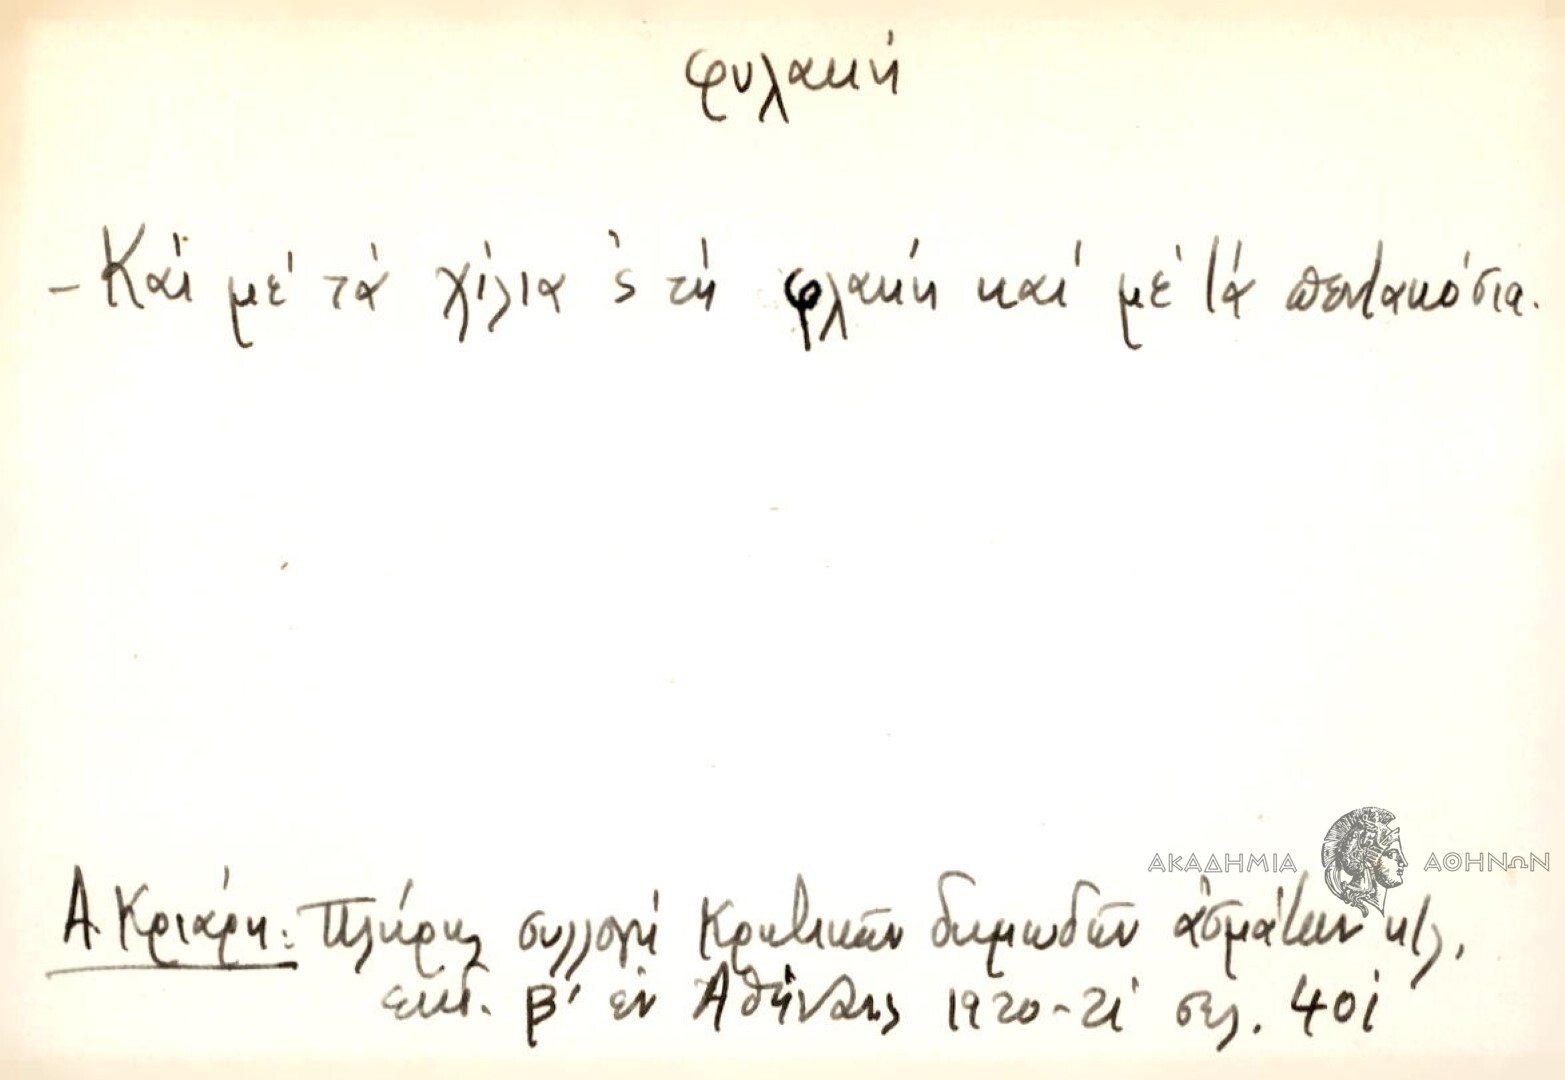 φυλακή
- Καὶ μὲ τὰ χίλια 'ς τὴ φλακὴ καὶ μὲ τὰ πεντακόσια.
ΑΚΑΔΗΜΙΑ ΑΘΗΝΩΝ
Α. Κριάρη: Πλήρης συλλογὴ Κρητικῶν δημωδῶν ᾀσμάτων κτλ,
εκδ. β' εν Αθήναις 1920-21 σελ. 401